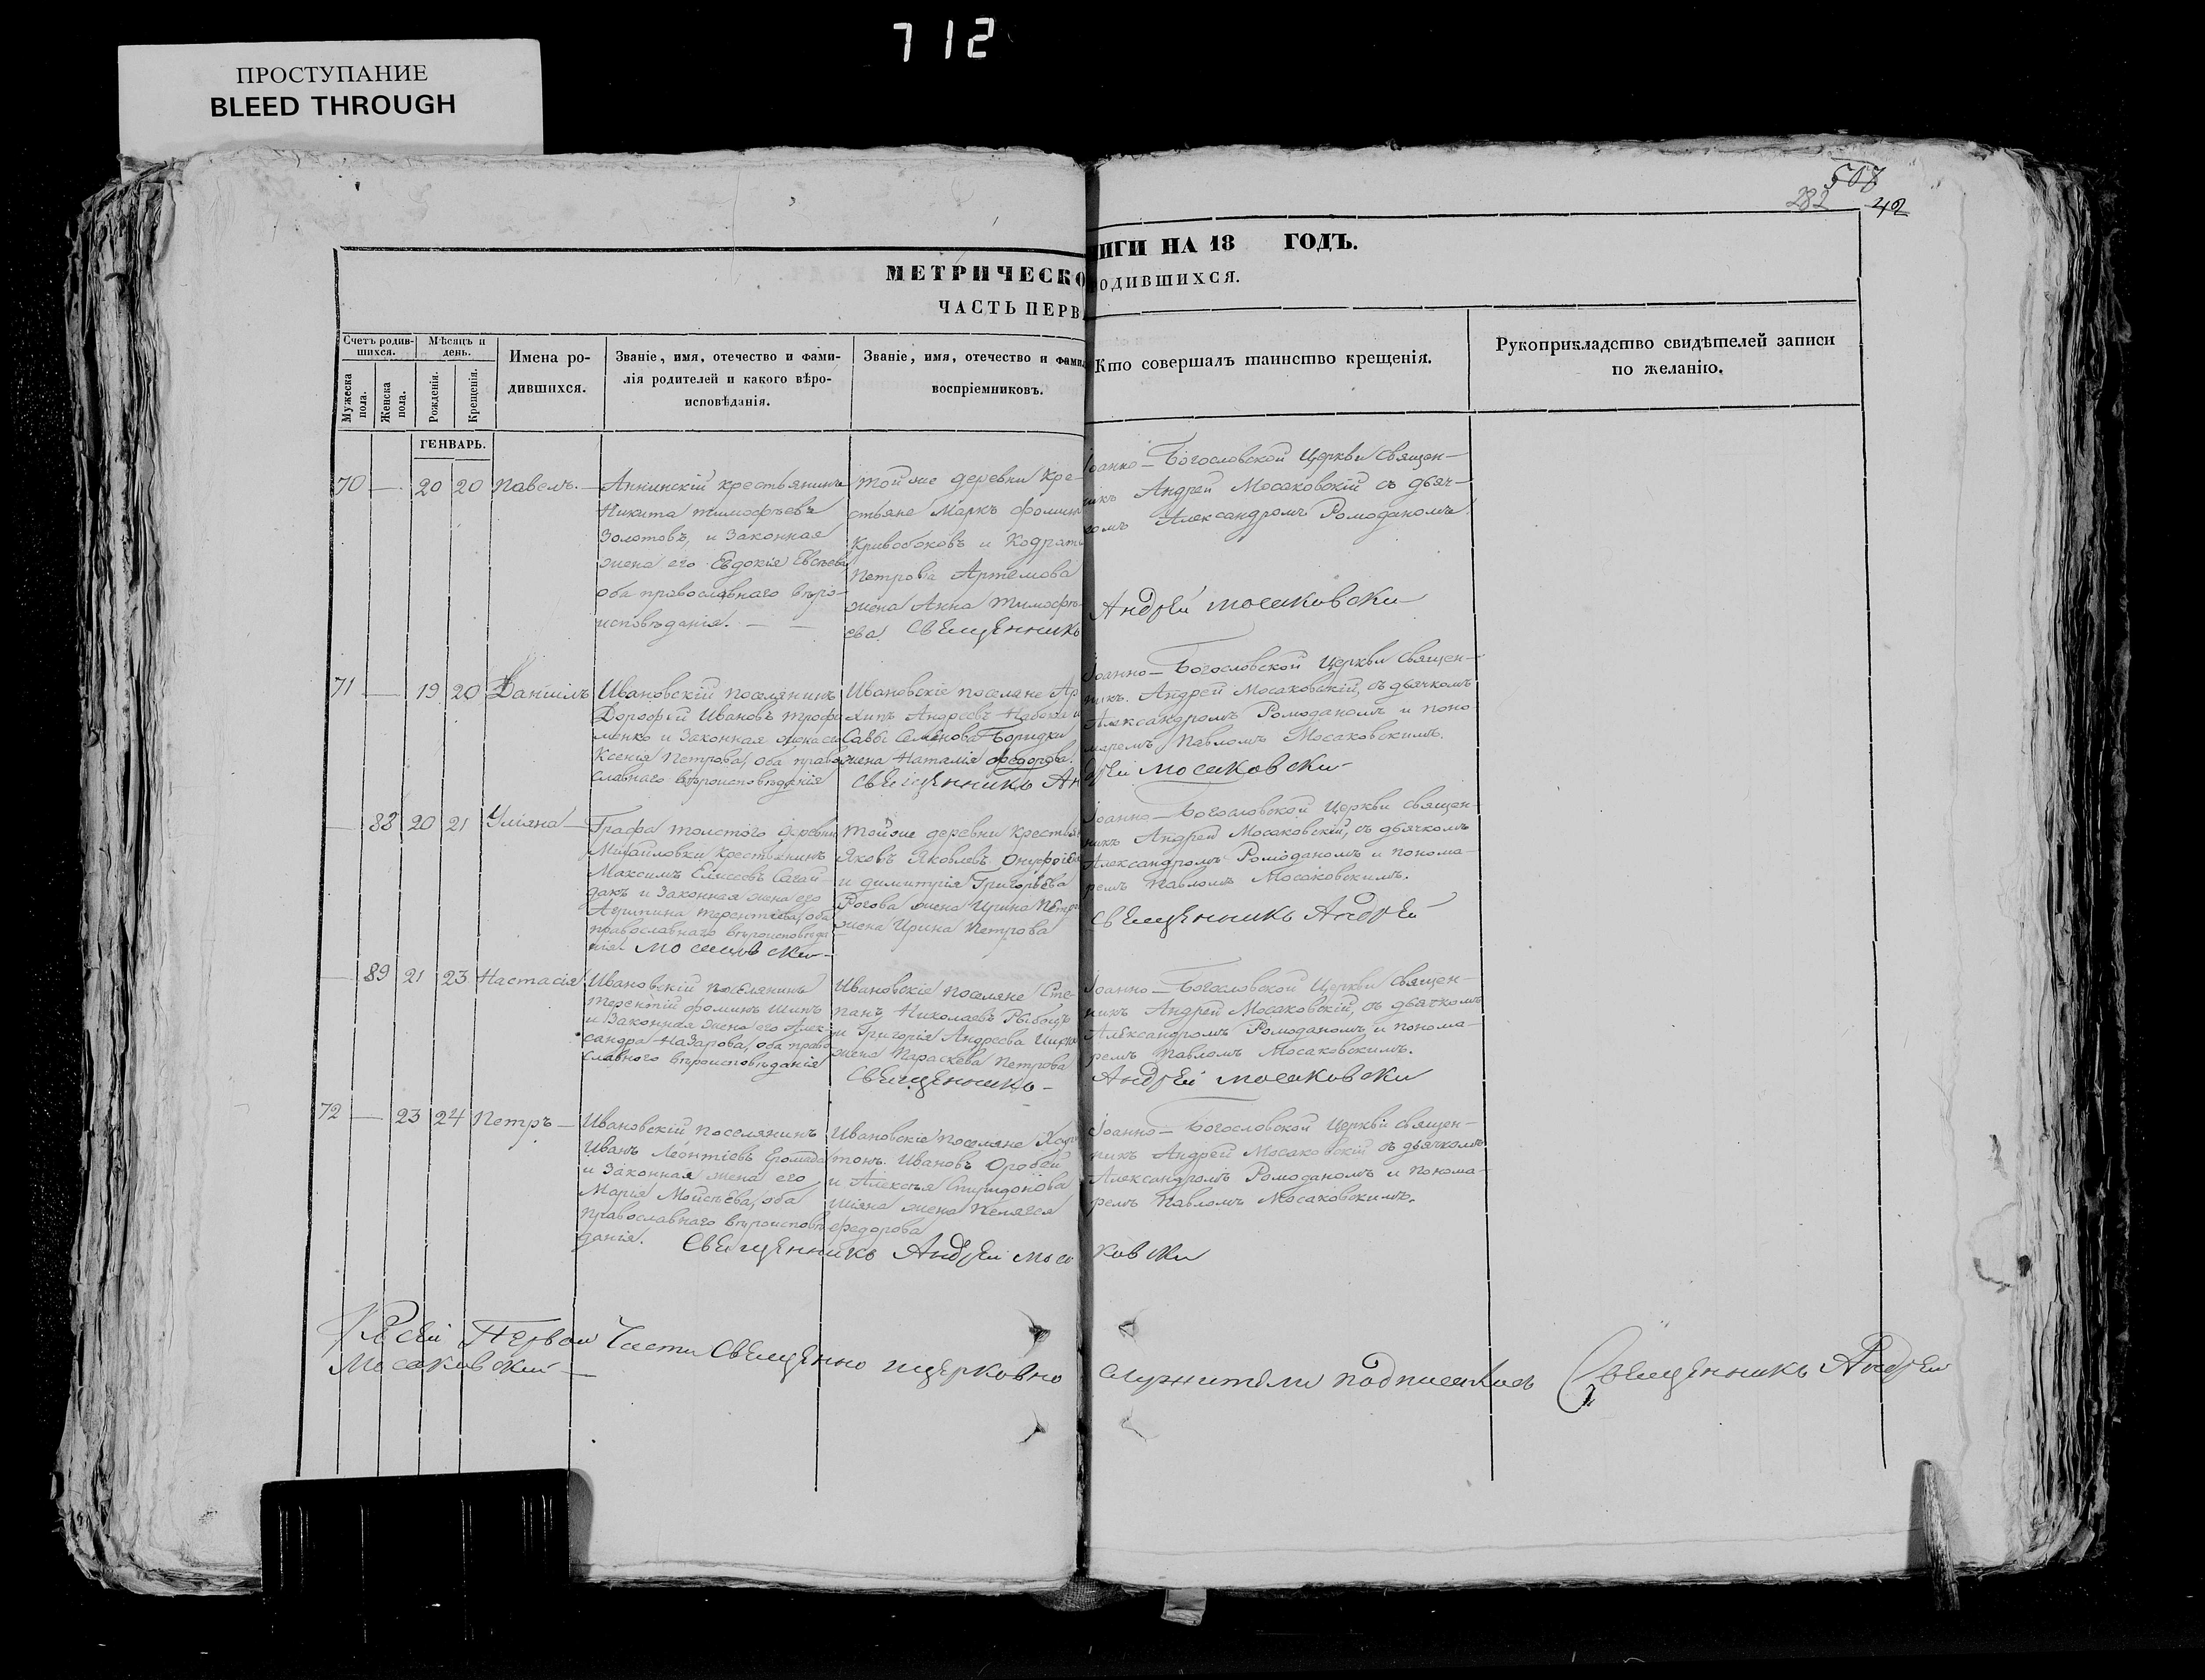 712
ПРОСТУПАНИЕ
BLEED THROUGH
507
282 42
МЕТРИЧЕСКО
ИГИ НА 18 ГОДЪ.
ЧАСТЬ ПЕРВ
ОДИВШИХСЯ.
Счетъ родив-
шихся.
Мужеска
пола.
Женска
пола.
Мѣсяцъ и
день.
Рожденія.
Крещенія.
Имена ро-
дившихся.
Званіе, имя, отечество и фами-
лія родителей и какого вѣро-
исповѣданія.
Званіе, имя, отечество и фами
воспріемниковъ.
Кто совершалъ таинство крещенія.
Рукоприкладство свидѣтелей записи
по желанію.
ГЕНВАРЬ.
70 — 20 20 Павелъ. —
Аннинскій крестьянинъ
Никита Тимофѣевъ
Золотовъ, и законная
жена его Евдокія Евсѣева
оба православнаго вѣро-
исповѣданія. — —
той же деревни кре-
стьяне Маркъ Фоминъ
Кривобоковъ и Кодрата
Петрова Артемова
жена Анна Тимофѣ-
ева. Священникъ
Іоанно-Богословской Церкви Священ-
никъ Андрей Мосаковскій съ дьяч-
комъ Александромъ Ромоданомъ.
Андрей Мосаковски
71 — 19 20 Даніилъ
Ивановскій поселянинъ
Дорофей Ивановъ Трофи
менко и законная жена его
Ксенія Петрова, оба право
славнаго вѣроисповѣданія
Ивановскіе поселяне Ар
хипъ Андреевъ Набока и
Саввы Семенова
жена Наталія Федорова.
Священникъ Ан
Іоанно-Богословской Церкви Священ-
никъ Андрей Мосаковскій, съ дьячкомъ
Александромъ Ромоданомъ и поно
маремъ Павломъ Мосаковскимъ.
дрей Мосаковски
— 88 20 21 Уліяна —
Графа Толстого деревни
Михайловки крестьянинъ
Максимъ Елисеевъ Сагай
дакъ и законная жена его
Агрипина Терентіева, оба
православнаго вѣроисповѣда
нія. Мосаковски
той же деревни крестьян
Яковъ Яковлевъ
и Димитрія Григорьева
Рогова жена Ирина Петр
жена Ирина Петрова
Іоанно-Богословской Церкви Священ-
никъ Андрей Мосаковскій, съ дьячкомъ
Александромъ Ромоданомъ и понома-
ремъ Павломъ Мосаковскимъ.
Священникъ Андрей
— 89 21 23 Настасія
Ивановскій поселянинъ
Терентій Фоминъ
и законная жена его Алек
сандра Назарова, оба право
славного вѣроисповѣданія
Ивановскіе поселяне Сте-
панъ Николаевъ
и Григорія Андреева
жена Параскева Петрова
Священникъ —
Іоанно-Богословской Церкви Священ-
никъ Андрей Мосаковскій, съ дьячкомъ
Александромъ Ромоданомъ и понома-
ремъ Павломъ Мосаковскимъ.
Андрей Мосаковски
72 — 23 24 Петръ —
Ивановскій поселянинъ
Иванъ Леонтіевъ
и законная жена его
Марія Мойсѣева, оба
православнаго вѣроисповѣ
данія.
Ивановскіе поселяне Хари
тонъ Ивановъ
и Алексѣя Спиридонова
жена
Федорова
Священникъ Андрей Мосо
Іоанно-Богословской Церкви Священ-
никъ Андрей Мосаковскій съ дьячкомъ
Александромъ Ромоданомъ и понома-
ремъ Павломъ Мосаковскимъ.
ковски
Къ сей Первой Части Священно церковно служители подписались Священникъ Андрей
Мосаковский —